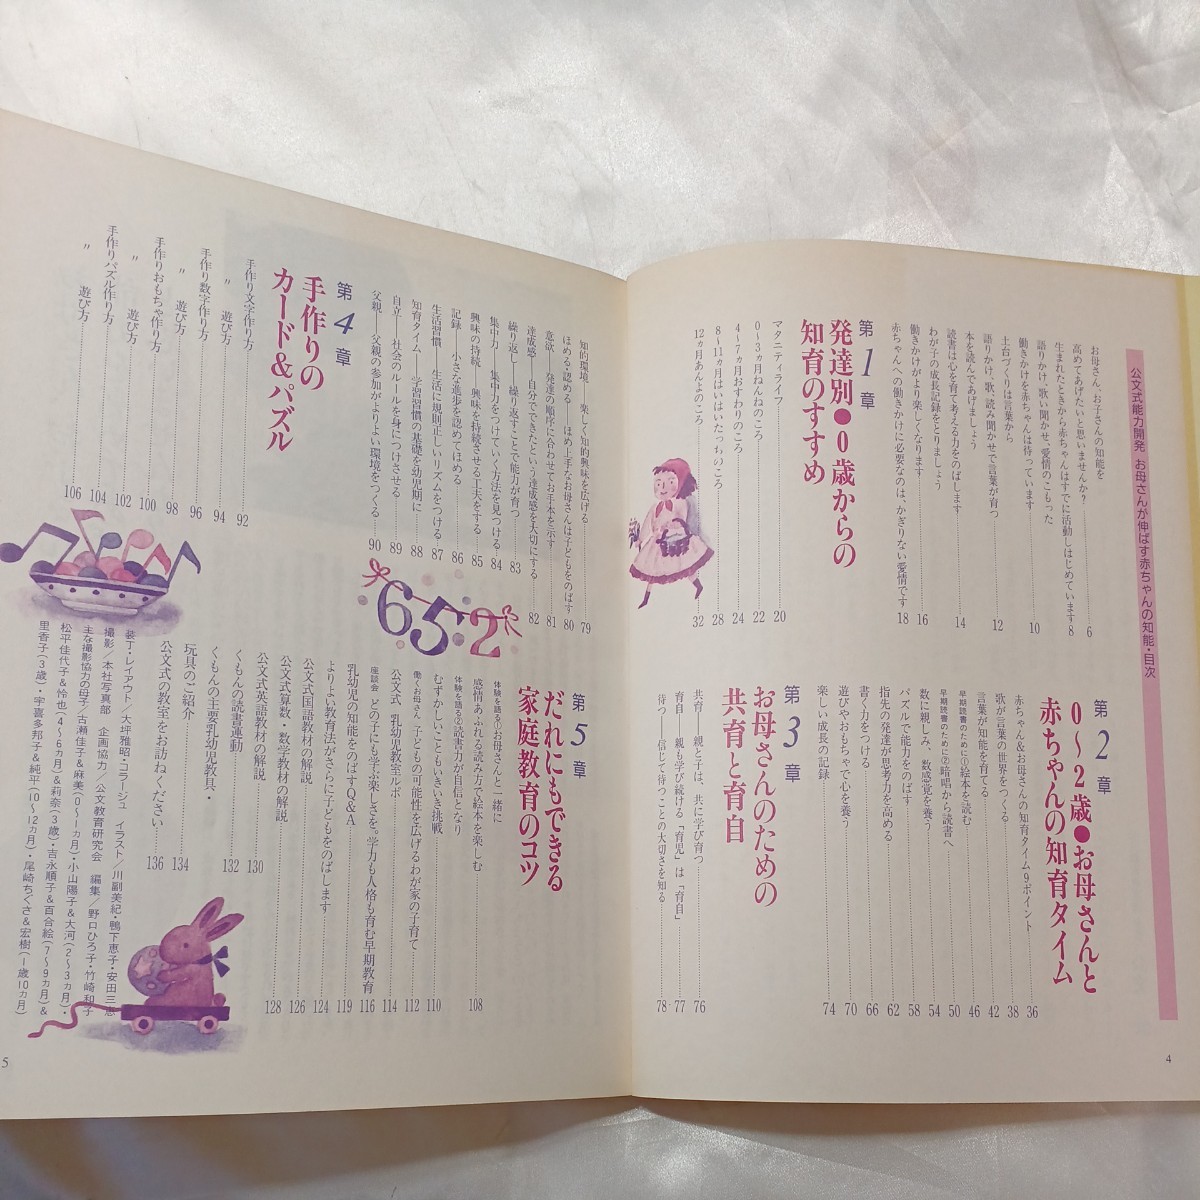 公文式能力開発 お母さんが伸ばす赤ちゃんの知能・目次
お母さん、お子さんの知能を
高めてあげたいと思いませんか?……6
生まれたときから赤ちゃんはすでに活動しはじめています 8
語りかけ、歌い聞かせ、愛情のこもった
働きかけを赤ちゃんは待っています……10
土台づくりは言葉から
語りかけ、歌い、読み聞かせで言葉が育つ……12
本を読んであげましょう
読書は心を育て考える力をのばします……14
わが子の成長記録をとりましょう
働きかけがより楽しくなります……16
赤ちゃんへの働きかけに必要なのは、かぎりない愛情です 18
第1章
発達別●0歳からの
知育のすすめ
マタニティライフ……20
0〜3ヵ月ねんねのころ……22
4〜7ヵ月おすわりのころ……24
8〜11ヵ月はいはいたっちのころ……28
12ヵ月あんよのころ……32
第2章
0〜2歳●お母さんと
赤ちゃんの知育タイム
赤ちゃん&お母さんの知育タイム9ポイント……36
歌が言葉の世界をつくる……38
言葉が知能を育てる……42
早期読書のために①絵本を読む……46
早期読書のために②暗唱から読書へ……50
数に親しみ、数感覚を養う……54
パズルで能力をのばす……58
指先の発達が思考力を高める……62
書く力をつける……66
遊びやおもちゃで心を養う……70
楽しい成長の記録……74
第3章
お母さんのための
共育と育自
共育 親と子は、共に学び育つ……76
育自 親も学び続ける「育児」は「育自」……77
待つ 信じて待つことの大切さを知る……78
4
知的環境——楽しく知的興味を広げる……79
ほめる・認める——ほめ上手なお母さんは子どもをのばす 80
意欲 発達の順序に合わせてお手本を示す……81
達成感——自分でできたという達成感を大切にする……82
繰り返し——繰り返すことで能力が育つ……83
集中力——集中力をつけていく方法を見つける……84
興味の持続 興味を持続させる工夫をする……85
記録——小さな進歩を認めてほめる……86
生活習慣——生活に規則正しいリズムをつける……87
知育タイム——学習習慣の基礎を幼児期に……88
自立——社会のルールを身につけさせる……89
父親——父親の参加がよりよい環境をつくる……90
第4章
手作りの
カード&パズル
手作り文字作り方……92
〃 遊び方……94
手作り数字作り方……96
〃 遊び方……98
手作りおもちゃ作り方……100
〃 遊び方……102
手作りパズル作り方……104
〃 遊び方……106
652
第5章
だれにもできる
家庭教育のコツ
体験を語る①お母さんと一緒に
感情あふれる読み方で絵本を楽しむ……108
体験を語る②読書力が自信となり
むずかしいこともいきいき挑戦……110
働くお母さん 子どもの可能性を広げるわが家の子育て……112
公文式 乳幼児教室ルポ……114
座談会 どの子にも学ぶ楽しさを。学力も人格も育む早期教育 116
乳幼児の知能をのばすQ&A……119
よりよい教育法がさらに子どもをのばします……124
公文式国語教材の解説……126
公文式算数・数学教材の解説……128
公文式英語教材の解説……130
くもんの読書運動……132
くもんの主要乳幼児教具・
玩具のご紹介……134
公文式の教室をお訪ねください……136
装丁・レイアウト/大坪雅昭・コラージュ イラスト/川副美紀・鴨下恵子・安田三恵
撮影/本社写真部 企画協力/公文教育研究会 編集/野口ひろ子・竹崎和子
主な撮影協力の母子/古瀬佳子&麻美(0〜1ヵ月)・小山陽子&大河(2〜3ヵ月)・
松平佳代子&怜也(4〜6ヵ月)&莉奈(3歳)・吉永順子&百合絵(7〜9ヵ月)&
里香子(3歳)・宇喜多邦子&純平(10〜12ヵ月)・尾崎ちぐさ&宏樹(1歳10ヵ月)
5